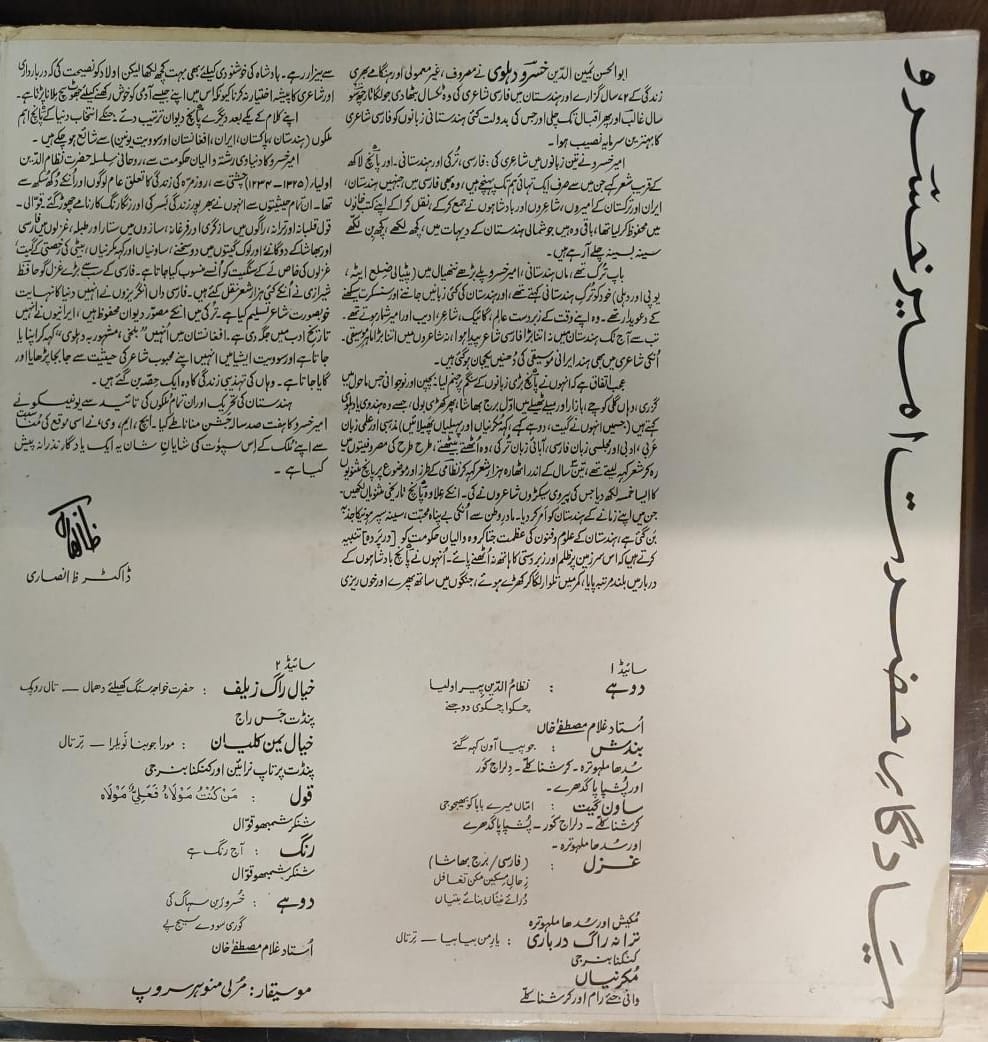 بیادگاری حضرت امیر خسرو
ابوالحسن یمین الدین خسرو دہلوی نے مصروف، غیر معمولی اور ہنگامے بھری
زندگی کے ۷۲ سال گزارے اور ہندستان میں فارسی شاعری کی وہ ٹکسال بٹھا دی جو لگاتار چھ سو
سال غالب اور پھر اقبال تک چلی اور جس کی بدولت کئی ہندستانی زبانوں کو فارسی شاعری
کا بہترین سرمایہ نصیب ہوا۔
امیر خسرو نے تین زبانوں میں شاعری کی: فارسی، ترکی اور ہندستانی۔ اور پانچ لاکھ
کے قریب شعر کہے جن میں سے صرف ایک تہائی ہم تک پہنچے ہیں، وہ بھی فارسی میں جنہیں ہندستان،
ایران اور ترکستان کے امیروں، شاعروں اور بادشاہوں نے جمع کر کے، نقل کرا کے اپنے کتب خانوں
میں محفوظ کر لیا تھا، باقی وہ ہیں جو شمالی ہندستان کے دیہات میں، کچھ لکھے، کچھ بن لکھے
سینہ بسینہ چلے آ رہے ہیں۔
باپ ترک تھے، ماں ہندستانی، امیر خسرو پلے بڑھے ننھیال میں (پٹیالی ضلع ایٹہ،
یوپی اور دہلی) خود کو ترک ہندستانی کہتے تھے، اور ہندستان کی کئی زبانیں جاننے اور سنسکرت سیکھنے
کے دعویدار تھے۔ وہ اپنے وقت کے زبردست عالم، گائیک، شاعر، ادیب اور امیر شمار ہوتے تھے۔
تب سے آج تک ہندستان میں نہ اتنا بڑا فارسی شاعر پیدا ہوا، نہ شاعروں میں اتنا بڑا ماہر موسیقی۔
انکی شاعری میں بھی ہندایرانی موسیقی کی دھنیں یکجان ہو گئی ہیں۔
عجب اتفاق ہے کہ انہوں نے پانچ بڑی زبانوں کے سنگم پر جنم لیا۔ بچپن اور نوجوانی جس ماحول میں
گزری، وہاں گلی کوچے، بازار اور میلے ٹھیلے میں اوّل برج بھاشا، پھر کھڑی بولی، جسے وہ ہندوی یا دہلوی
کہتے ہیں (جسمیں انہوں نے گیت، دوہے کہے، کہہ مکرنیاں اور پہیلیاں پھیلائیں) مذہبی اور علمی زبان
عربی، ادبی اور مجلسی زبان فارسی، آبائی زبان ترکی، وہ اٹھتے بیٹھتے، طرح طرح کی مصروفیتوں میں
رہ کر شعر کہہ لیتے تھے، تین سال کے اندر اٹھارہ ہزار شعر کہہ کر نظامی کے طرز اور موضوع پر پانچ مثنویوں
کا ایسا خمسہ لکھ دیا جس کی پیروی سیکڑوں شاعروں نے کی۔ انکے علاوہ پانچ تاریخی مثنویاں لکھیں۔
جن میں اپنے زمانے کے ہندستان کو امر کر دیا۔ مادر وطن سے انکی بے پناہ محبت، سینہ سپر ہونیکا جذبہ
بن گئی ہے، ہندستان کے علوم و فنون کی عظمت جتا کر وہ والیان حکومت کو [درپردہ] تنبیہہ
کرتے ہیں کہ اس سرزمین پر ظلم اور زبردستی کا ہاتھ نہ اٹھنے پائے۔ انہوں نے پانچ بادشاہوں کے
دربار میں بلند مرتبہ پایا، کمر میں تلوار لگا کر کھڑے ہوئے، جنگوں میں ساتھ پھرے اور خوں ریزی
سے بیزار رہے۔ بادشاہ کی خوشنودی کیلئے بھی بہت کچھ لکھا لیکن اولاد کو نصیحت کی کہ درباداری
اور شاعری کا پیشہ اختیار نہ کرنا کیونکہ اس میں اپنے جیسے آدمی کو خوش رکھنے کیلئے جھوٹ سچ ملانا پڑتا ہے۔
اپنے کلام کے یکے بعد دیگرے پانچ دیوان ترتیب دئے: جنکے انتخاب دنیا کے پانچ اہم
ملکوں (ہندستان، پاکستان، ایران، افغانستان اور سوویت یونین) سے شایع ہو چکے ہیں۔
امیر خسرو کا دنیاوی رشتہ والیان حکومت سے، روحانی سلسلہ حضرت نظام الدین
اولیار (۱۳۲۵ – ۱۲۳۴) چشتی سے، روزمرہ کی زندگی کا تعلق عام لوگوں اور انکے دکھ سکھ سے
تھا۔ ان تمام حیثیتوں سے انہوں نے بھرپور زندگی بسر کی اور رنگا رنگ کارنامے چھوڑ گئے۔ قوالی۔
قول قلبانہ اور ترانہ، راگوں میں سازگری اور فرغانہ، سازوں میں ستار اور طبلہ، غزلوں میں فارسی
اور بھاشا کے دوگانے اور لوک گیتوں میں دوسخنے، ساونیاں اور کہہ مکرنیاں، بیٹی کی رخصتی کے گیت،
غزلوں کی خاص لے کے سنگیت کو ان سے منسوب کیا جاتا ہے۔ فارسی کے سب سے بڑے غزل گو حافظ
شیرازی نے انکے کئی ہزار شعر نقل کئے ہیں۔ فارسی داں انگریزوں نے انہیں دنیا کا نہایت
خوبصورت شاعر تسلیم کیا ہے۔ ترکی میں انکے مصور دیوان محفوظ ہیں، ایرانیوں نے انہیں
تاریخ ادب میں جگہ دی ہے۔ افغانستان میں انہیں "بلخی، مشہور بہ دہلوی" کہہ کر اپنایا
جاتا ہے اور سوویت ایشیا میں انہیں اپنے محبوب شاعر کی حیثیت سے جا بجا پڑھایا اور
گایا جاتا ہے۔ وہاں کی تہذیبی زندگی کا وہ ایک حصہ بن گئے ہیں۔
ہندستان کی تحریک اور ان تمام ملکوں کی تائید سے یونیسکو نے
امیر خسرو کا ہفت صد سالہ جشن منانا طے کیا۔ ایچ، ایم، وی نے اسی موقع کی مناسبت
سے اپنے ملک کے اس سپوت کی شایان شان یہ ایک یادگار نذرانہ پیش
کیا ہے۔
ظ انصاری
ڈاکٹر ظ انصاری
سائیڈ ۱
دوہے : نظام الدین پیر اولیا
چکوا چکوی دو جنے
استاد غلام مصطفےٰ خاں
بندش : جو پیا آون کہہ گئے
سدھا ملہوترہ۔ کرشنا کلّے۔ دلراج کور
اور پشپا پاگدھرے۔
ساون گیت : امّاں میرے بابا کو بھیجو جی
کرشنا کلّے۔ دلراج کور۔ پشپا پاگدھرے
اور سدھا ملہوترہ۔
غزل : (فارسی/برج بھاشا)
زحال مسکین مکن تغافل
دُرائے نیناں بنائے بتیاں
مکیش اور سدھا ملہوترہ
ترانہ راگ درباری : یار من بیا بیا — تِرتال
کنکنا بنرجی
مکرنیاں
وانی جئے رام اور کرشنا کلّے
سائیڈ ۲
خیال راگ زیلف : حضرت خواجہ سنگ کھیلئے دھمال — تال روپک
پنڈت جس راج
خیال یمن کلیان : مورا جوبنا نویلرا — تِرتال
پنڈت پرتاپ نرائین اور کنکنا بنرجی
قول : مَنْ کُنْتُ مَوْلَاہُ فَعَلِیٌّ مَوْلَاہ
شنکر شمبھو قوّال
رنگ : آج رنگ ہے
شنکر شمبھو قوّال
دوہے : خسرو رین سہاگ کی
گوری سووے سیج پے
استاد غلام مصطفےٰ خان
موسیقار: مرلی منوہر سروپ